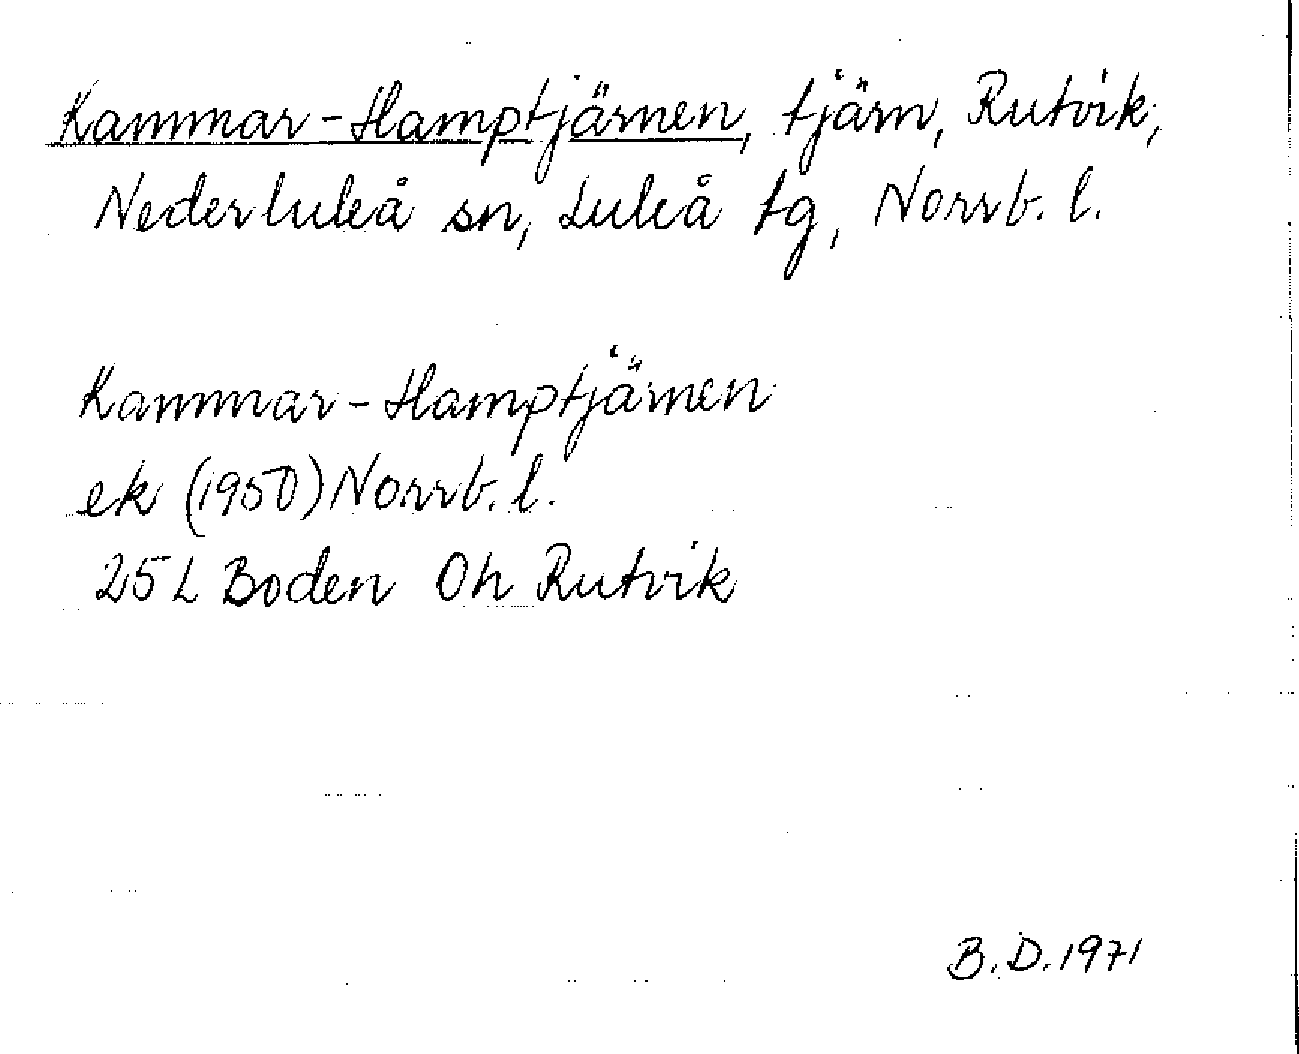 Kammar-Hamptjärnen, tjärn, Rutvik,
Nederluleå sn, Luleå tg, Norrb. l.
Kammar-Hamptjärnen
ek (1950) Norrb. l.
25 L Boden Oh Rutvik
B.D. 1971